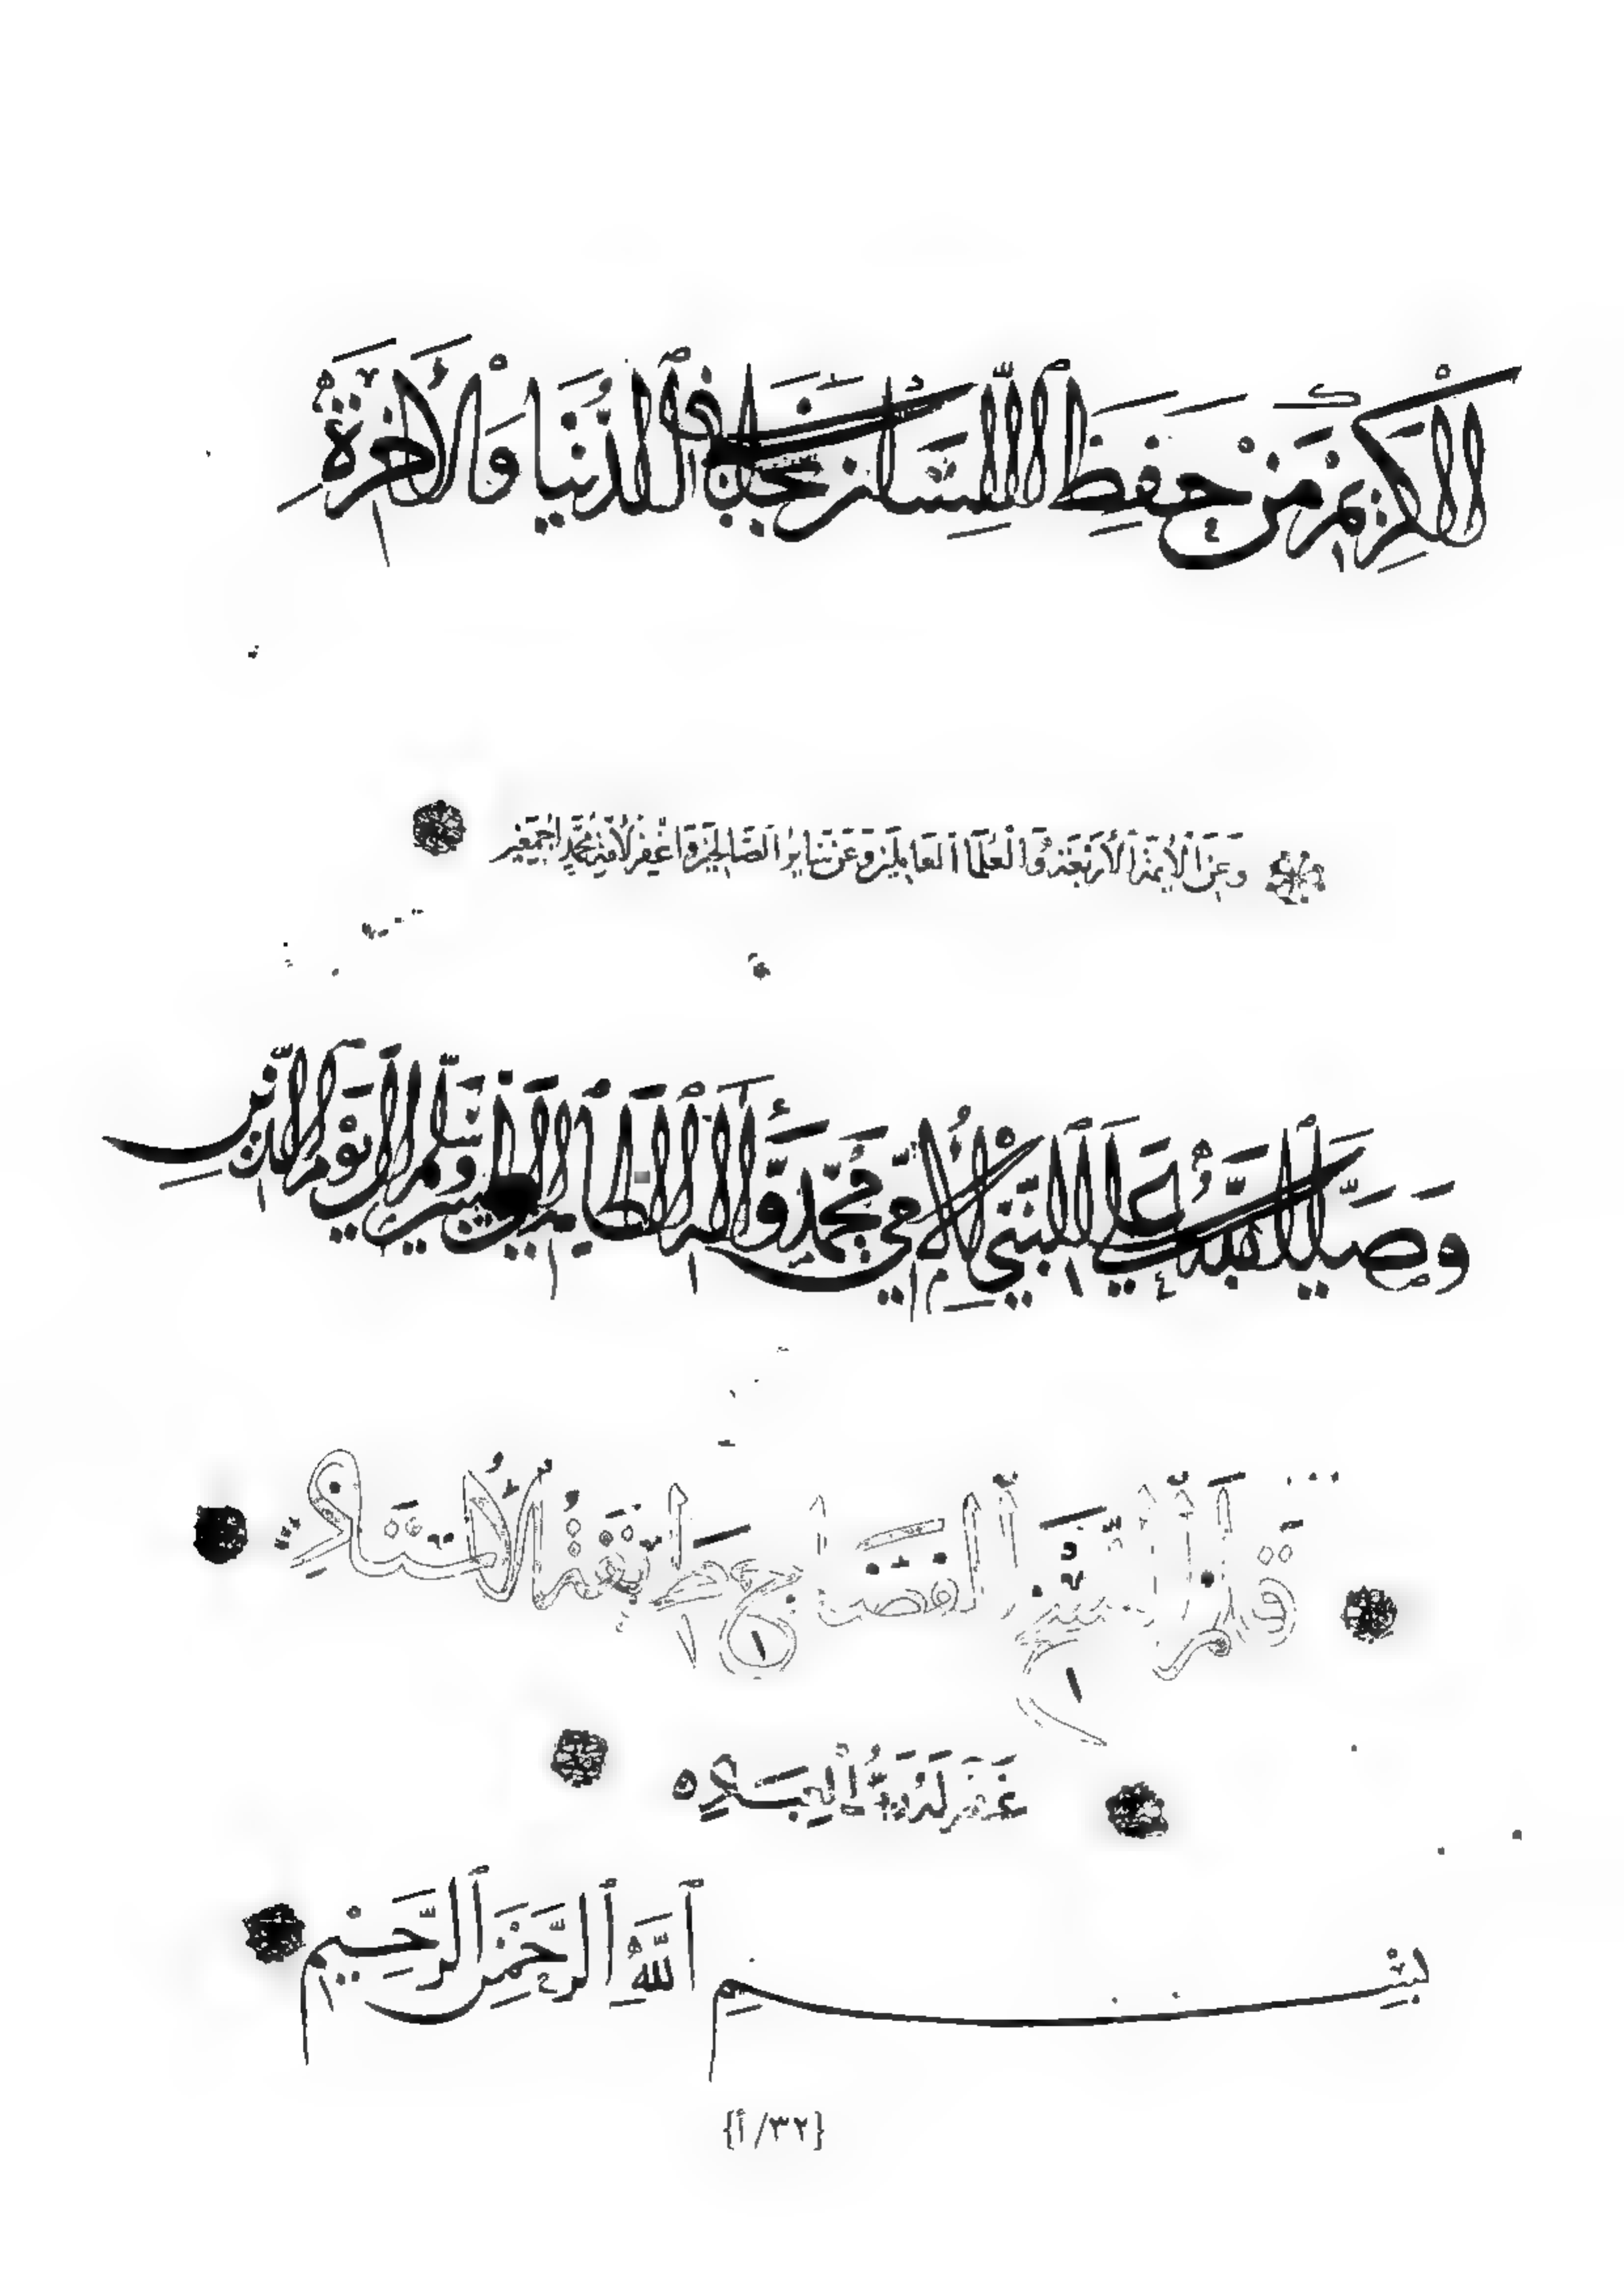 الْكَرِيمِ مَنْ حَفِظَ اللِّسَانَ نَجَا فِي الدُّنْيَا وَالْآخِرَةِ
وَعَنِ الْأَئِمَّةِ الْأَرْبَعَةِ وَالْعُلَمَاءِ الْعَامِلِينَ وَعَنْ سَايِرِ الصَّالِحِينَ وَاغْفِرْ لِأُمَّةِ مُحَمَّدٍ أَجْمَعِينَ
وَصَلَّى اللَّهُ عَلَى النَّبِيِّ الْأُمِّيِّ مُحَمَّدٍ وَآلِهِ الطَّاهِرِينَ وَسَلَّمَ إِلَى يَوْمِ الدِّينِ
قَلَمُ الفَضَّاح طَرِيقَةُ الْأُسْتَاذِ
غَفَرَ لَهُ رَبُّ الْعِبَادِ
بِسْمِ اللَّهِ الرَّحْمَنِ الرَّحِيمِ
{٣٢/أ}